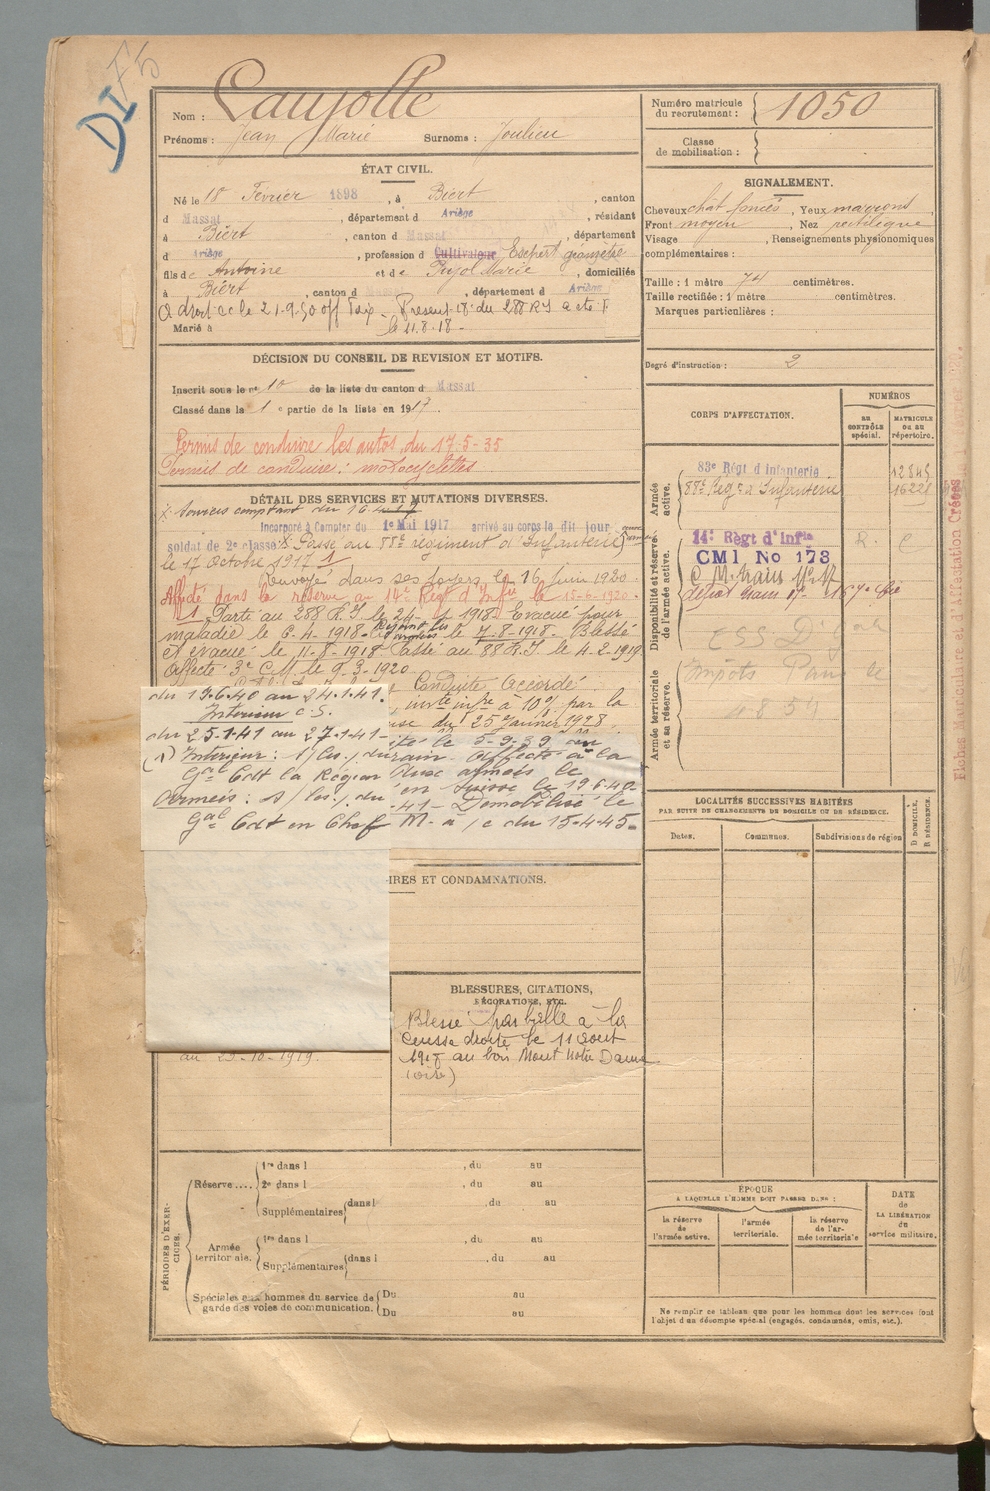 DIF5
Nom : Laujolle
Prénoms : Jean Marie Surnoms : Joulieu
Numéro matricule du recrutement : 1050
Classe de mobilisation :
ÉTAT CIVIL.
Né le 18 Février 1898, à Biert, canton
d Massat, département d Ariège, résidant
à Biert, canton d Massat, département
d Ariège, profession de Cultivateur Eschert géomètre
fils de Antoine et de Pujol Marie, domiciliés
à Biert, canton d Massat, département d Ariège
A droit cc le 21-9-50 off Présent 18e du 288 RI
Marié à le 11.8.18 -
SIGNALEMENT.
Cheveux chat foncés, Yeux marrons,
Front moyen, Nez rectiligne
Visage , Renseignements physionomiques
complémentaires :
Taille : 1 mètre 74 centimètres.
Taille rectifiée : 1 mètre centimètres.
Marques particulières :
Degré d'instruction : 2
DÉCISION DU CONSEIL DE REVISION ET MOTIFS.
Inscrit sous le no 10 de la liste du canton d Massat
Classé dans la 1e partie de la liste en 1917
Permis de conduire les autos du 17-5-35
Permis de conduire : motocyclettes
DÉTAIL DES SERVICES ET MUTATIONS DIVERSES.
X Services comptant du 16
Incorporé à Compter du 1e Mai 1917 arrivé au corps le dit jour
soldat de 2e classe X Passé au 88e régiment d'Infanterie
le 17 Octobre 1917 1
Renvoyé dans ses foyers le 16 Juin 1920.
Affecté dans la réserve au 14e Régt d'Infie le 15-6-1920.
1 Parti au 288 R.I le 24-4-1918. Evacué pour
maladie le 6-4-1918. Rejoint les armées le 7-8-1918. Blessé
et évacué le 11-8-1918. Passé au 88 R.I le 4-2-1919
Affecté 3e C.M. le 9-3-1920
Conduite Accordé
à 10% par la
du 25 Janvier 1928.
du 19.6.40 au 24.1.41.
Interieur C.S.
du 25.1.41 au 27.1.41 -
(1) Interieur : s/les/ du
Gal Cdt la Région
Armées : s/les/, du
Gal Cdt en Chef
le 5-9-39 au
Affecté à la
aux armées le
en Suisse le 19 6-40-
-41 - Démobilisé le
M-à, c du 15-4-45.
IRES ET CONDAMNATIONS.
BLESSURES, CITATIONS,
DÉCORATIONS, ETC.
Blessé par balle à la
cuisse droite le 11 août
1918 au bois Mont Notre Dame
(oise)
au 23-10-1919.
CORPS D'AFFECTATION.
NUMÉROS
AU CONTRÔLE spécial.
MATRICULE ou au répertoire.
Armée active.
83e Régt d'infanterie 12845
88e Régt d'Infanterie 16228
Disponibilité et réserve de l'armée active.
14e Régt d'Infie R. C
CM1 No 173
C M. train No 17
dépôt train 17- 167e Cie
ESS D'
Armée territoriale et sa réserve.
Impôts
Fiches Matriculaire et d'Affectation Créées
LOCALITÉS SUCCESSIVES HABITÉES
PAR SUITE DE CHANGEMENTS DE DOMICILE OU DE RÉSIDENCE.
Dates. Communes. Subdivisions de région
D DOMICILE. R RÉSIDENCE.
PÉRIODES D'EXERCICES.
Réserve.... 1re dans l , du au
2e dans l , du au
Supplémentaires dans l , du au
Armée territoriale. 1re dans l , du au
Supplémentaires dans l , du au
Spéciales aux hommes du service de garde des voies de communication. Du au
Du au
ÉPOQUE
A LAQUELLE L'HOMME DOIT PASSER DANS :
la réserve de l'armée active. l'armée territoriale. la réserve de l'armée territoriale
DATE de LA LIBÉRATION du service militaire.
Ne remplir ce tableau que pour les hommes dont les services font
l'objet d'un décompte spécial (engagés, condamnés, omis, etc.).